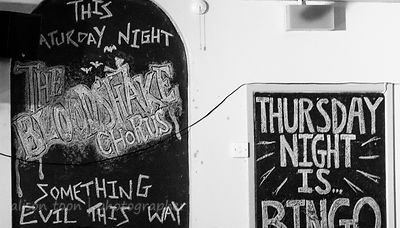 THIS
SATURDAY NIGHT
THE
BLOODSHAKE
CHORUS
SOMETHING
EVIL THIS WAY
alison toon | photography
THURSDAY
NIGHT
IS...
BINGO